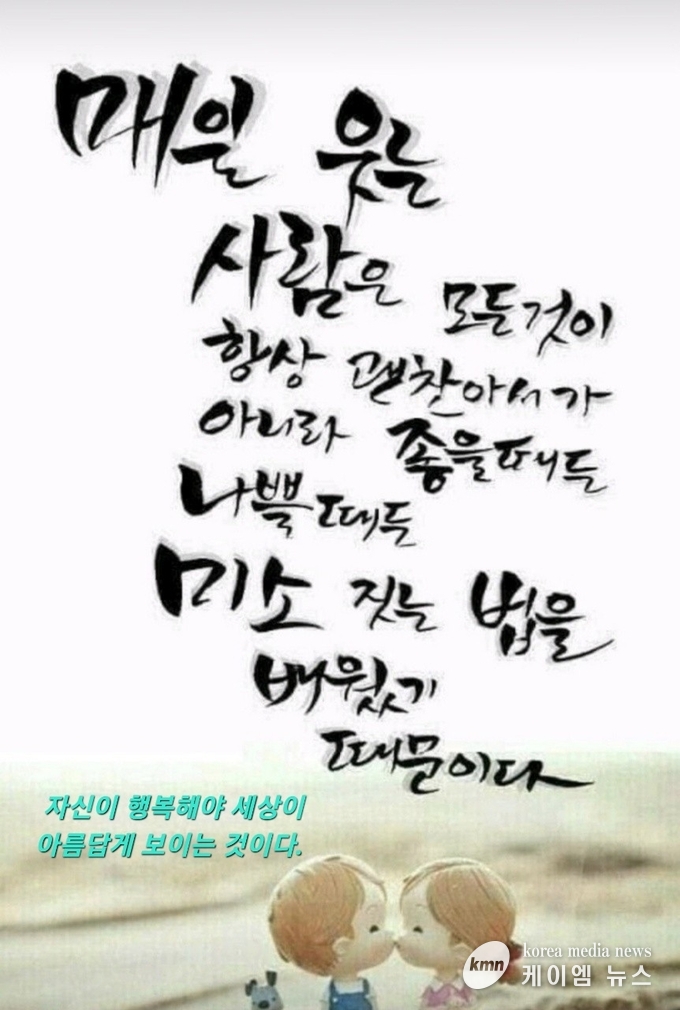 매일 웃는
사람은 모든것이
항상 괜찮아서가
아니라 좋을때든
나쁠때든
미소 짓는 법을
배웠기
때문이다
자신이 행복해야 세상이
아름답게 보이는 것이다.
kmn korea media news
케이엠 뉴스